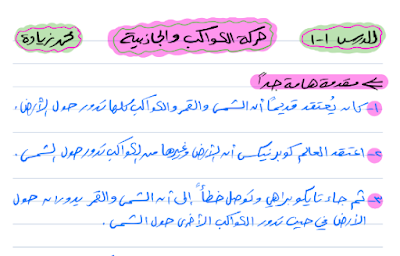 الدرس ١-١
حركة الكواكب والجاذبية
مقدمة هامة جداً
١- كان يُعتقد قديماً أن الشمس والقمر والكواكب كلها تدور حول الأرض.
٢- اعتقد العالم كوبرنيكس أن الأرض وغيرها من الكواكب تدور حول الشمس.
٣- ثم جاء تايكو براهي وتوصل خطأً إلى أن الشمس والقمر يدوران حول
الأرض في حين تدور الكواكب الأخرى حول الشمس.